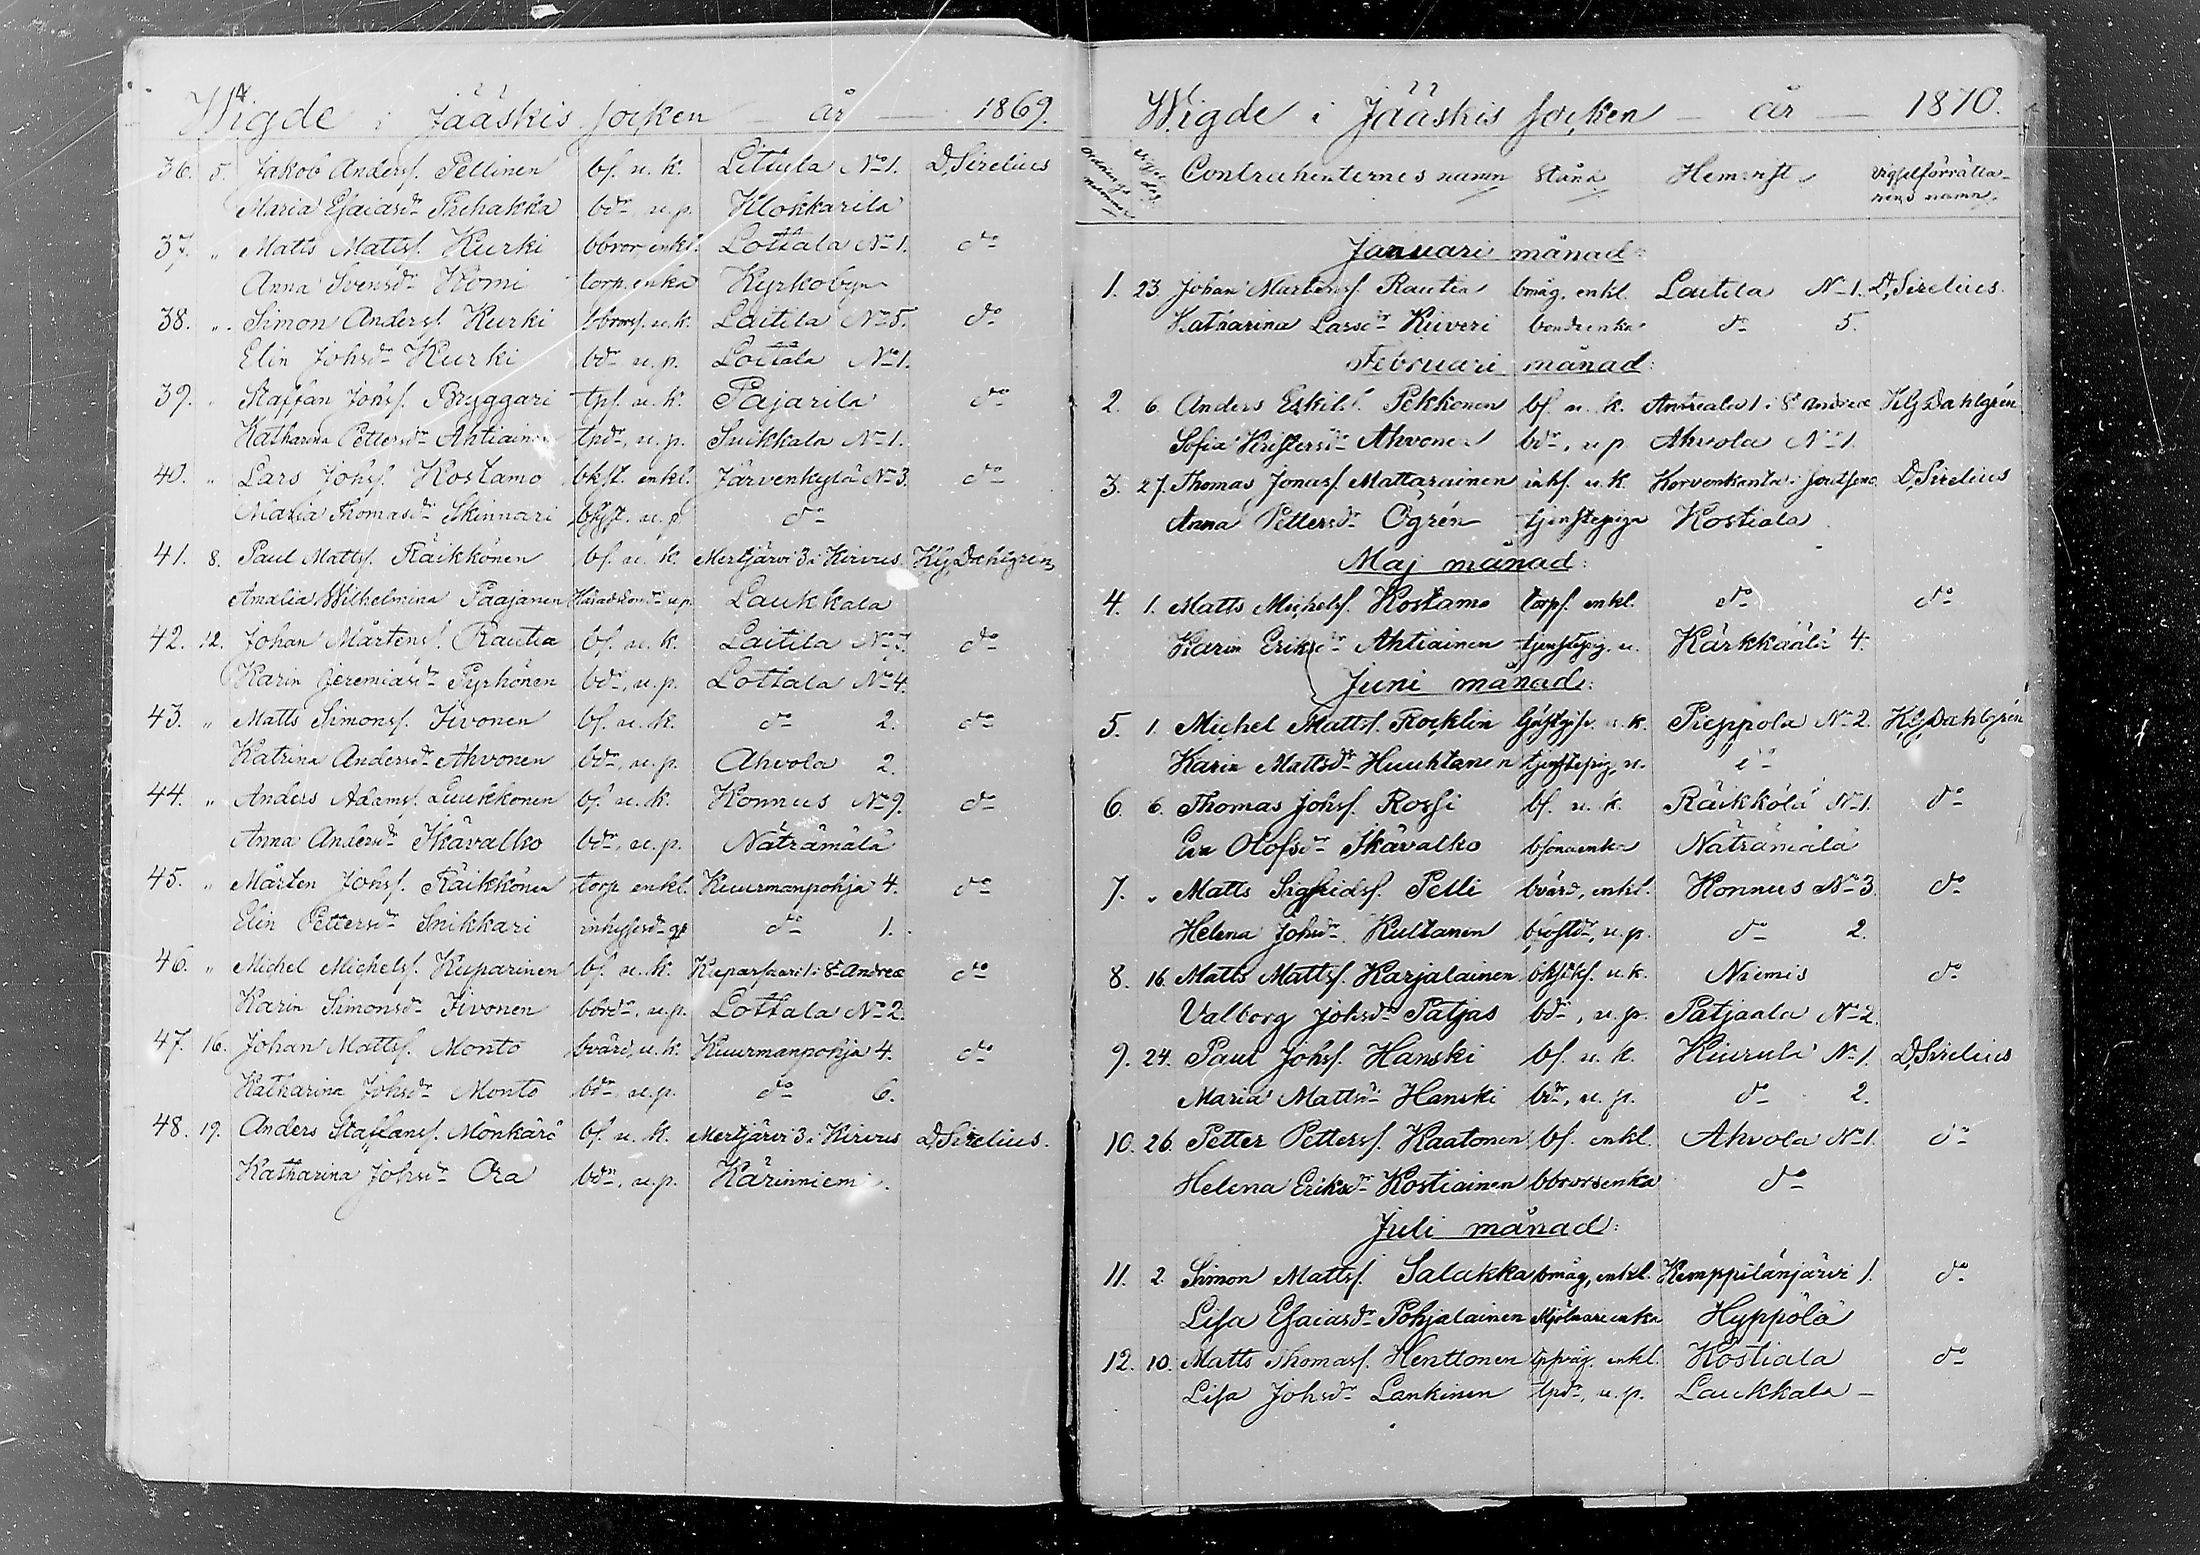 Wigde i Jääskis socken år 1869.
36. 5. Jakob Anders. Pellinen bs. u. k. Littula No 1. D. Sirelius
Maria Esaiasdr Puhakka bdr, u. p. Klokkarila
37. " Matts Mattss. Kurki bbror, enkl. Lottala No 1. do
Anna Svensdr Homi torp. enka Kyrkobyn
38. " Simon Anderss. Kurki bbrors. u. k. Laitila No 5. do
Elin Johsdr Kurki bdr u. p. Lottala No 1.
39. " Staffan Johss. Bryggari tps. u. k. Pajarila do
Katharina Pettersdr Ahtiainen tpdr, u. p. Snikkala No 1.
40. " Lars Johss. Kostamo bkst. enkl. Järvenkylä No 3. do
Maria Thomasdr Skinnari u. p. do
41. 8. Paul Mattss. Räikkönen bs. u. k. Mertjärvi 3 i Kirvus Klg Dahlgrén
Amalia Wilhelmina Paajanen u. p. Laukkala
42. 12. Johan Mårtenss. Rautia bs. u. k. Laitila No do
Karin Jeremiasdr Pyrhönen bdr, u. p. Lottala No 4.
43. " Matts Simonss. Iivonen bs. u. k. do 2. do
Katrina Andersdr Ahvonen bdr, u. p. Ahvola 2.
44. " Anders Adamss. Luukkonen bs. u. k. Konnus No 9. do
Anna Andersdr Ikävalko bdr, u. p. Näträmälä
45. " Mårten Johss. Räikkönen torp. enkl. Kuurmanpohja 4. do
Elin Pettersdr Snikkari inhysesdr qp do 1.
46. " Michel Michelss. Kuparinen bs. u. k. Kuparsaari 1 i St Andreæ do
Karin Simonsdr Iivonen bbrdr, u. p. Lottala No 2.
47. 16. Johan Mattss. Monto bvärd, u. k. Kuurmanpohja 4. do
Katharina Johsdr Monto bdr, u. p. do 6.
48. 19. Anders Staffanss. Mönkärö bs. u. k. Mertjärvi 3 i Kirvus D. Sirelius.
Katharina Johsdr Ora bdr, u. p. Kärinniemi.
Wigde i Jääskis socken år 1870.
Ordnings nummer Vigsel dag. Contrahenternes namn Stånd Hemvist Vigselförrätta-
rens namn.
Januari månad:
1. 23. Johan Mårtenss. Rautia bmåg, enkl. Laitila No 1. D. Sirelius.
Katharina Larsdr Kiiveri bondeenka do 5.
Februari månad:
2. 6. Anders Eskilss. Pekkonen bs. u. k. Anttreala 1 i St Andreæ Klg Dahlgrén
Sofia Kristersdr Ahvonen bdr, u. p. Ahvola No 1.
3. 27. Thomas Jonass. Mattarainen inhs. u. k. Korvenkanta i Joutseno D. Sirelius
Anna Pettersdr Ögrén tjenstepiga Kostiala
Maj månad:
4. 1. Matts Michelss. Kostamo torps. enkl. do do
Karin Eriksdr Ahtiainen tjenstepig. u. Kärkkäälä 4.
Juni månad:
5. 1. Michel Mattss. Rocklin u. k. Pieppola No 2. Klg Dahlgrén
Karin Mattsdr Huuhtanen tjenstepig. u. do
6. 6. Thomas Johss. Rossi bs. u. k. Räikkölä No 1. do
Eva Olofsdr Ikävalko bsonaenka Näträmälä
7. " Matts Sigfridss. Pelli bvärd, enkl. Konnus No 3. do
Helena Johsdr Kultanen u. p. do 2.
8. 16. Matts Mattss. Karjalainen u. k. Niemis do
Valborg Johsdr Patjas bdr, u. p. Patjaala No 2.
9. 24. Paul Johss. Hanski bs. u. k. Kiurula No 1. D. Sirelius
Maria Mattsdr Hanski bdr, u. p. do 2.
10. 26. Petter Petterss. Kaatonen bs. enkl. Ahvola No 1. do
Helena Eriksdr Kostiainen bbrorsenka do
Juli månad:
11. 2. Simon Mattss. Salakka bmåg, enkl. Kemppilänjärvi 1. do
Lisa Esaiasdr Pohjalainen Mjölnareenka Hyppölä
12. 10. Matts Thomass. Henttonen enkl. Kostiala do
Lisa Johsdr Lankinen tpdr, u. p. Laukkala